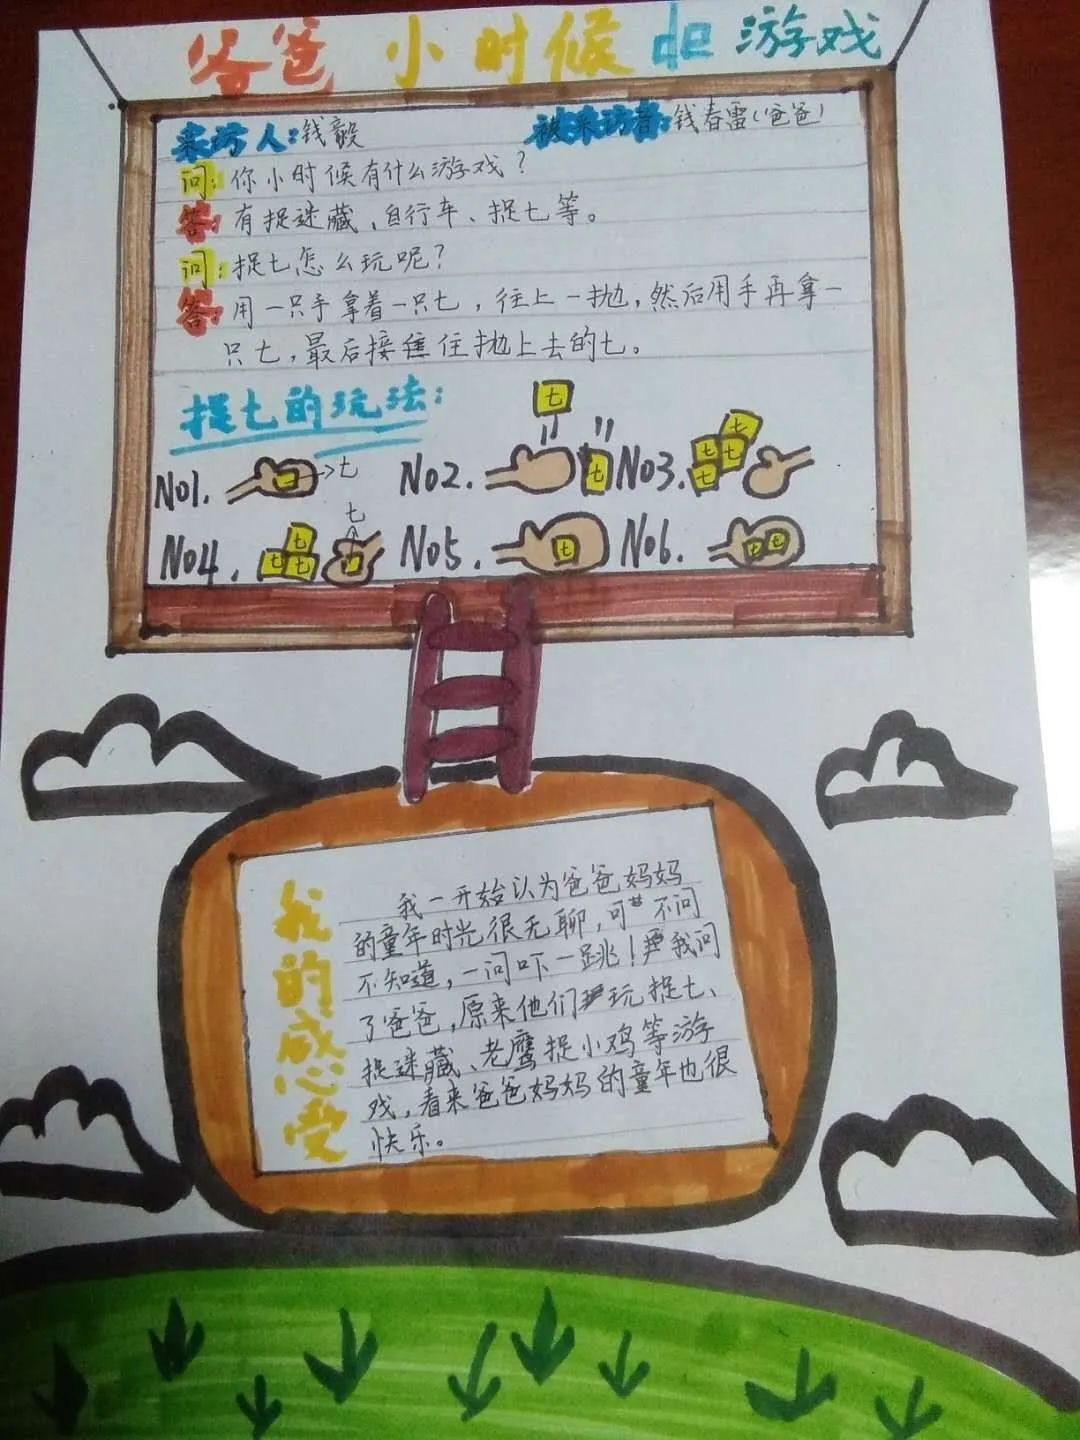 爸爸小时候de游戏
采访人:钱毅 被采访者:钱春雷(爸爸)
问:你小时候有什么游戏?
答:有捉迷藏、自行车、捉七等。
问:捉七怎么玩呢?
答:用一只手拿着一只七,往上一抛,然后用手再拿一
只七,最后接住抛上去的七。
捉七的玩法:
No1. 七 No2. 七 七 No3. 七 七 七 七
No4. 七 七 七 七 No5. 七 No6. 七 七
我的感受
我一开始认为爸爸妈妈
的童年时光很无聊,可不问
不知道,一问吓一跳!我问
了爸爸,原来他们玩捉七、
捉迷藏、老鹰捉小鸡等游
戏,看来爸爸妈妈的童年也很
快乐。